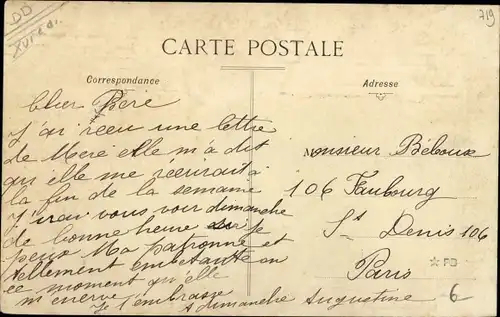 DD
719
CARTE POSTALE
Correspondance
Adresse
Cher Père
J'ai reçu une lettre
de Mère elle m'a dit
qu'elle me récrirait à
la fin de la semaine
J'irai vous voir dimanche
de bonne heure si je
peux Ma patronne est
tellement embêtante en
ce moment qu'elle
m'énerve Je t'embrasse
A dimanche Augustine
Monsieur Béboux
106 Faubourg
St Denis 106
Paris
*FB
6